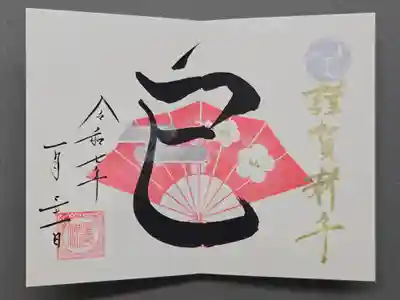 謹賀新年
巳
令和七年
一月三日